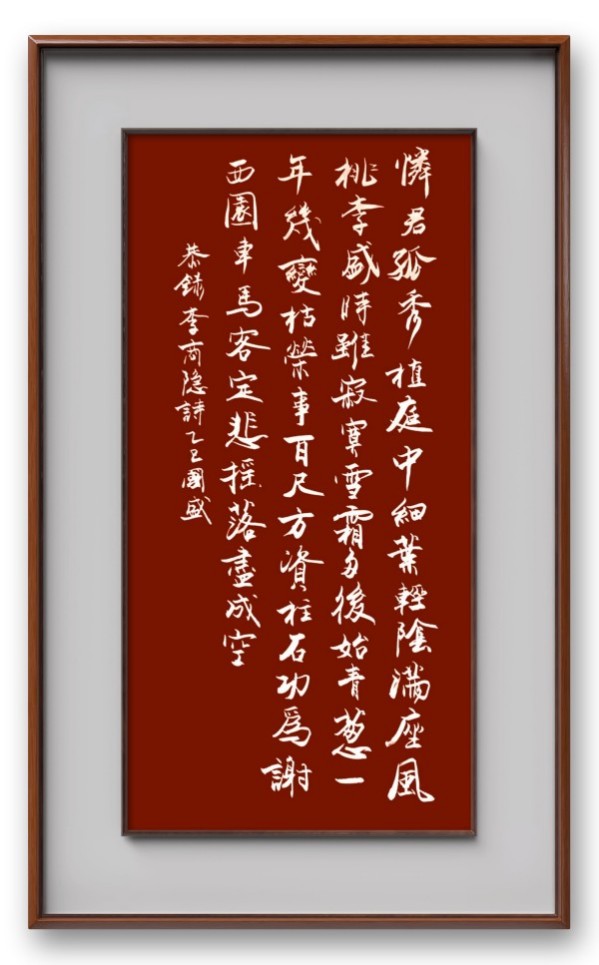 憐君孤秀植庭中細葉輕陰滿座風
桃李盛時雖寂寞雪霜多後始青葱一
年幾變枯榮事百尺方資柱石功為謝
西園車馬客定悲搖落盡成空
恭録李商隐詩乙巳國盛